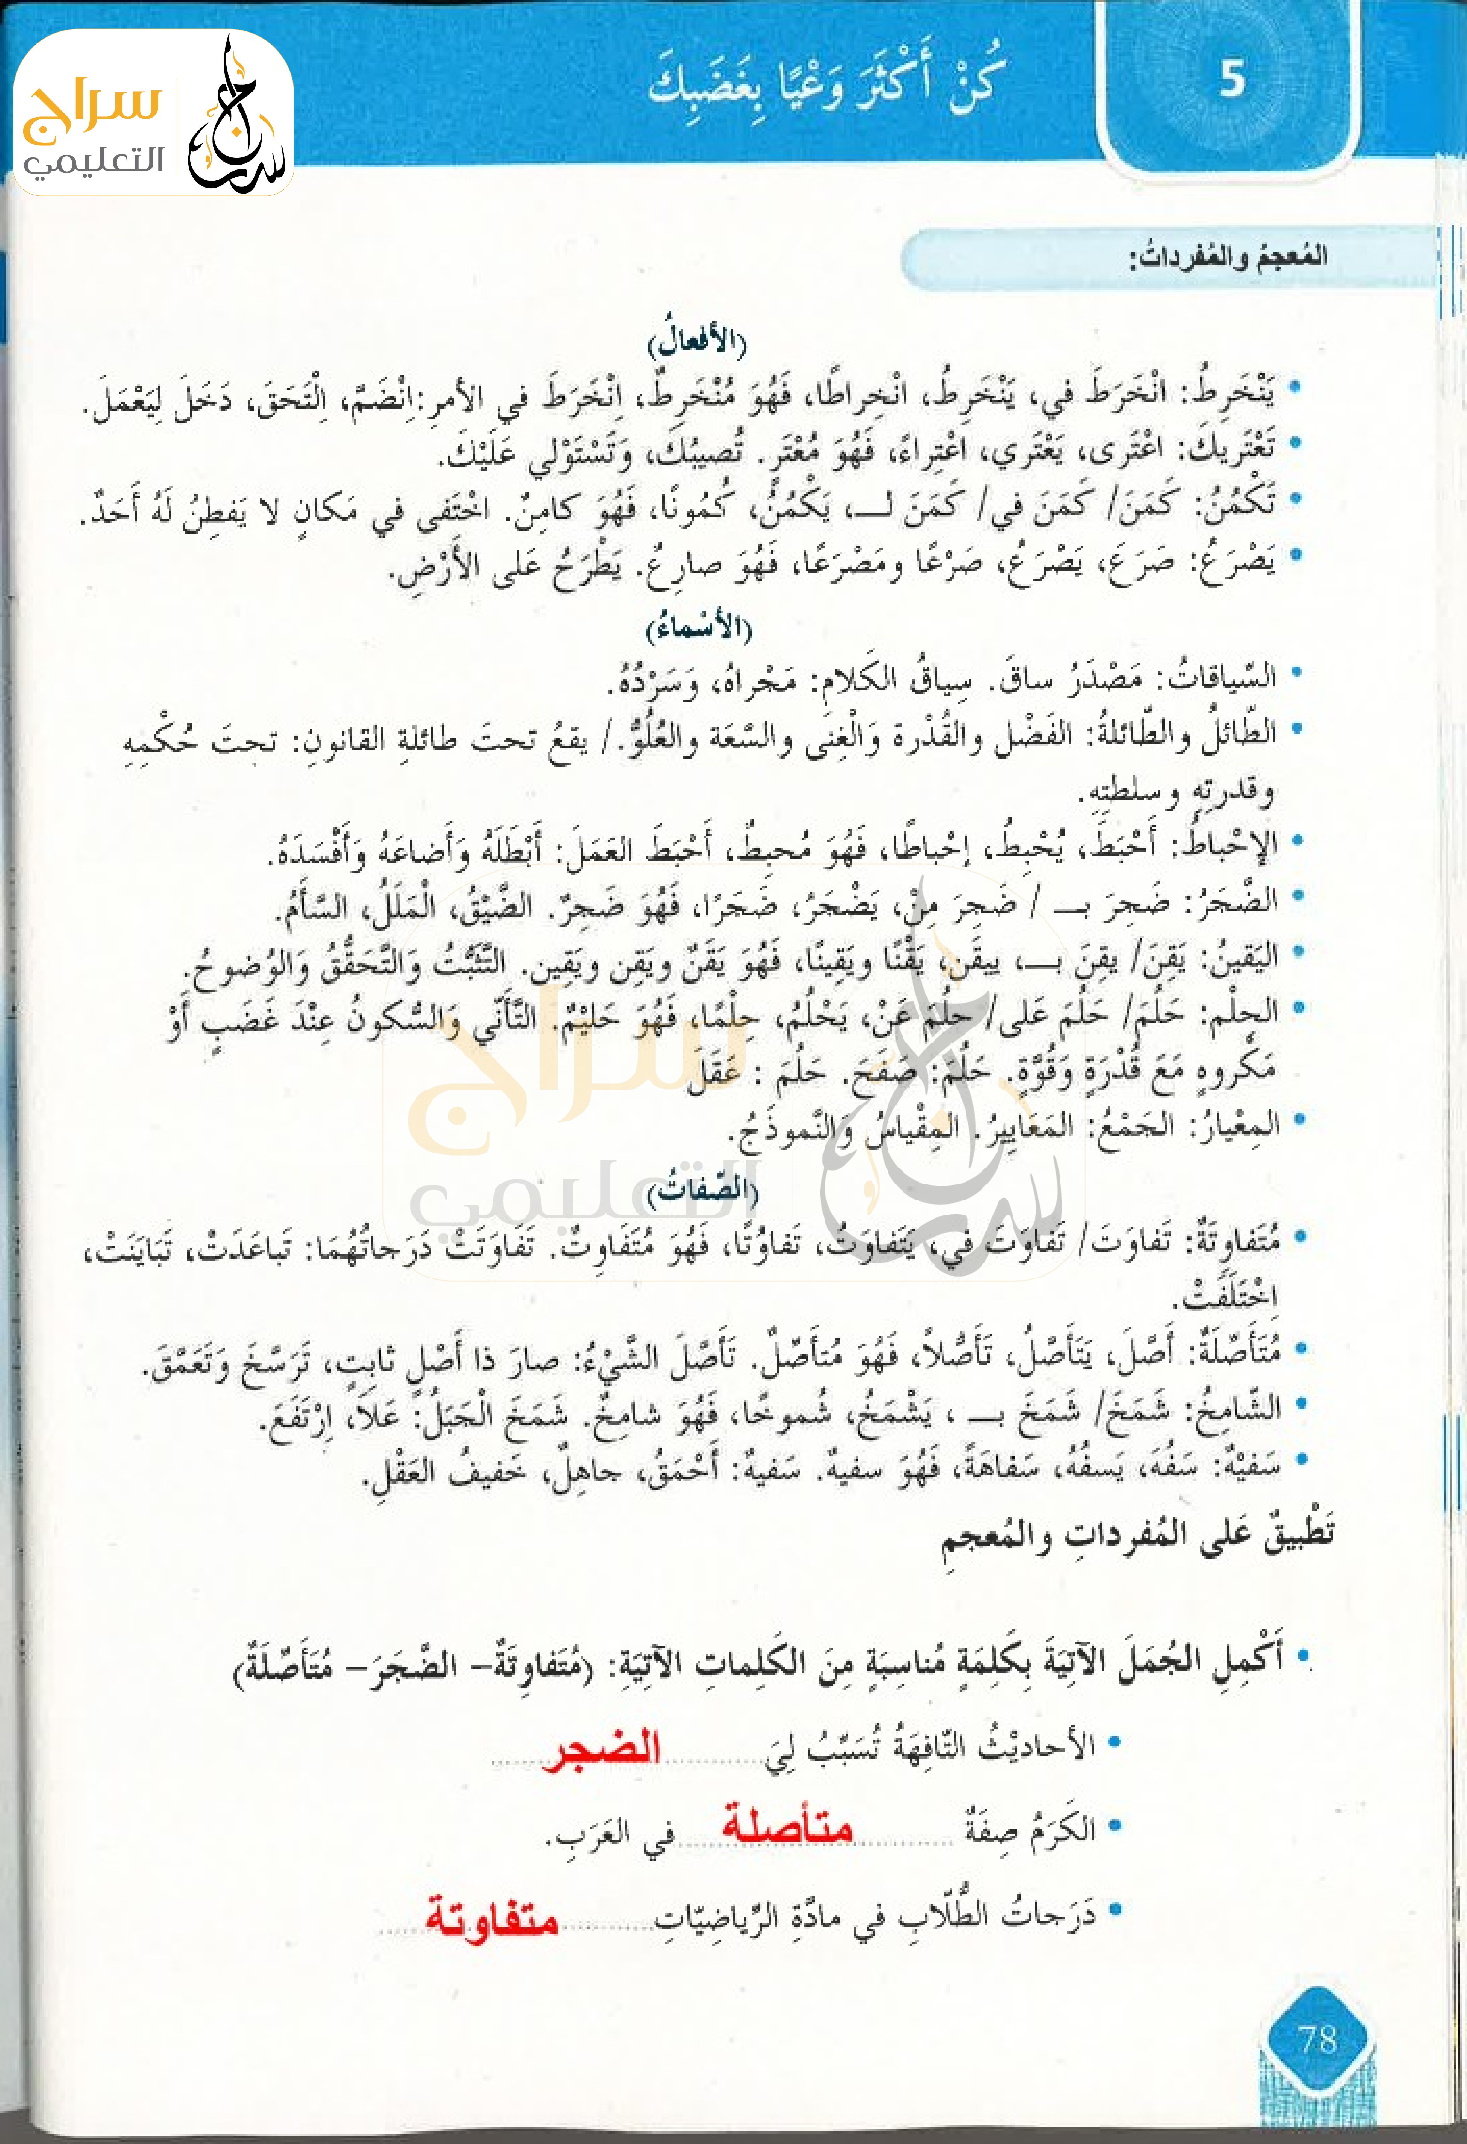 سراج
التعليمي
كُنْ أَكْثَرَ وَعْيًا بِغَضَبِكَ
5
المُعجمُ والمُفرداتُ:
(الأفعالُ)
• يَنْخَرِطُ: انْخَرَطَ في، يَنْخَرِطُ، انْخِراطًا، فَهُوَ مُنْخَرِطٌ، اِنْخَرَطَ في الأمرِ:اِنْضَمَّ، اِلْتَحَقَ، دَخَلَ لِيَعْمَلَ.
• تَعْتَريكَ: اعْتَرى، يَعْتَري، اعْتِراءً، فَهُوَ مُعْتَرٍ. تُصيبُكَ، وَتَسْتَوْلي عَلَيْكَ.
• تَكْمُنُ: كَمَنَ/ كَمَنَ في/ كَمَنَ لــ، يَكْمُنُ، كُمُونًا، فَهُوَ كامِنٌ. اخْتَفى في مَكانٍ لا يَفطِنُ لَهُ أَحَدٌ.
• يَصْرَعُ: صَرَعَ، يَصْرَعُ، صَرْعًا ومَصْرَعًا، فَهُوَ صارِعٌ. يَطْرَحُ عَلى الأَرْضِ.
(الأسْماءُ)
• السِّياقاتُ: مَصْدَرُ ساقَ. سِياقُ الكَلامِ: مَجْراهُ، وَسَرْدُهُ.
• الطّائلُ والطّائلةُ: الفَضْل والقُدْرة وَالْغِنَى والسَّعَة والعُلُوُّ./ يقعُ تحتَ طائلةِ القانونِ: تحتَ حُكْمِهِ
وقدرتِهِ وسلطتِهِ.
• الإحْباطُ: أَحْبَطَ، يُحْبِطُ، إحْباطًا، فَهُوَ مُحبِطٌ، أَحْبَطَ العَمَلَ: أَبْطَلَهُ وَأَضاعَهُ وَأَفْسَدَهُ.
• الضَّجَرُ: ضَجِرَ بــ / ضَجِرَ مِنْ، يَضْجَرُ، ضَجَرًا، فَهُوَ ضَجِرٌ. الضِّيْقُ، الْمَلَلُ، السَّأَمُ.
• اليَقينُ: يَقِنَ/ يقِنَ بــ، ييقَن، يَقْنًا ويَقِينًا، فَهُوَ يَقَنٌ ويَقِن ويَقِين. التَّثَبُّتُ وَالتَّحَقُّقُ وَالوُضوحُ.
• الحِلْم: حَلُمَ/ حَلُمَ عَلى/ حلُمَ عَنْ، يَحْلُمُ، حِلْمًا، فَهُوَ حَليْمٌ. التَّأَنّي وَالسُّكونُ عِنْدَ غَضَبٍ أَوْ
مَكْروهٍ مَعَ قُدْرَةٍ وَقُوَّةٍ. حَلُمَ: صَفَحَ. حَلُمَ : عَقَلَ
• المِعْيارُ: الجَمْعُ: المَعَايِيرُ. المِقْياسُ وَالنَّموذَجُ.
(الصِّفاتُ)
• مُتَفاوِتَةٌ: تَفاوَتَ/ تَفاوَتَ في، يَتَفاوَتُ، تَفاوُتًا، فَهُوَ مُتَفَاوِتٌ. تَفَاوَتَتْ دَرَجاتُهُمَا: تَباعَدَتْ، تَبَايَنَتْ،
اِخْتَلَفَتْ.
• مُتَأَصِّلَةٌ: أَصَّلَ، يَتَأَصَّلُ، تَأَصُّلاً، فَهُوَ مُتأَصِّلٌ. تَأَصَّلَ الشَّيْءُ: صارَ ذا أَصْلٍ ثابِتٍ، تَرَسَّخَ وَتَعَمَّقَ.
• الشّامِخُ: شَمَخَ/ شَمَخَ بــ ، يَشْمَخُ، شُموخًا، فَهُوَ شامِخٌ. شَمَخَ الْجَبَلُ: عَلاَ، اِرْتَفَعَ.
• سَفيْهٌ: سَفُهَ، يَسفُهُ، سَفاهَةً، فَهُوَ سفيهٌ. سَفيهٌ: أَحْمَقُ، جاهِلٌ، خَفيفُ العَقْلِ.
تَطْبيقٌ عَلى المُفرداتِ والمُعجمِ
• أَكْمِلِ الجُمَلَ الآتِيَةَ بِكَلِمَةٍ مُناسِبَةٍ مِنَ الكَلِماتِ الآتِيَةِ: (مُتَفاوِتَةٌ– الضَّجَرَ– مُتَأَصِّلَةٌ)
• الأحاديْثُ التّافِهَةُ تُسَبِّبُ لِيَ.......... الضجر ..........
• الكَرَمُ صِفَةٌ .......... متأصلة .......... في العَرَبِ.
• دَرَجاتُ الطُّلّابِ في مادَّةِ الرِّياضِيّاتِ.......... متفاوتة ..........
78